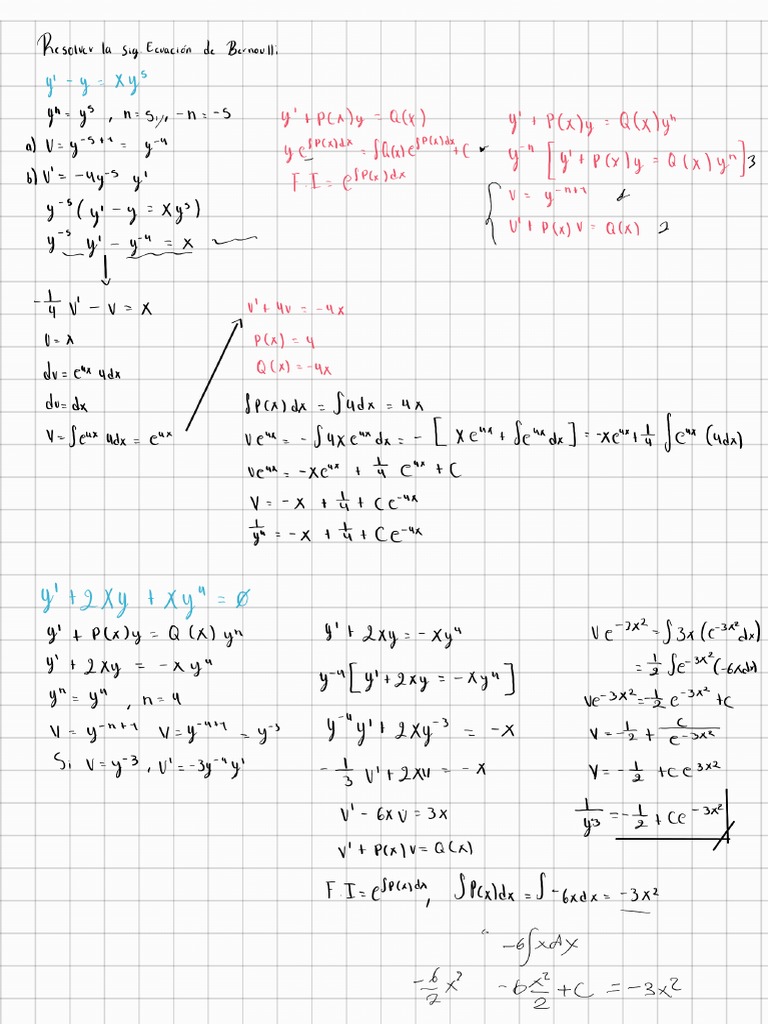 Resolver la sig Ecuación de Bernoulli.
y' - y = xy⁵
yⁿ = y⁵ , n = 5 ,, -n = -5
a) V = y⁻⁵⁺¹ = y⁻⁴
b) V' = -4y⁻⁵ y'
y⁻⁵ (y' - y = xy⁵)
y⁻⁵ y' - y⁻⁴ = x
y' + P(x)y = Q(x)
y e^∫P(x)dx = ∫Q(x) e^∫P(x)dx + C
F.I = e^∫P(x)dx
y' + P(x)y = Q(x)yⁿ
y⁻ⁿ [y' + P(x)y = Q(x)yⁿ] 3
V = y⁻ⁿ⁺¹ 1
V' + P(x)V = Q(x) 2
-1/4 V' - V = x
U = x
dv = e⁴ˣ 4dx
du = dx
V = ∫e⁴ˣ 4dx = e⁴ˣ
V' + 4V = -4x
P(x) = 4
Q(x) = -4x
∫P(x)dx = ∫4dx = 4x
Ve⁴ˣ = -∫4xe⁴ˣdx = -[xe⁴ˣ + ∫e⁴ˣdx] = -xe⁴ˣ + 1/4 ∫e⁴ˣ (4dx)
Ve⁴ˣ = -xe⁴ˣ + 1/4 e⁴ˣ + C
V = -x + 1/4 + Ce⁻⁴ˣ
1/y⁴ = -x + 1/4 + Ce⁻⁴ˣ
y' + 2xy + xy⁴ = 0
y' + P(x)y = Q(x)yⁿ
y' + 2xy = -xy⁴
yⁿ = y⁴ , n = 4
V = y⁻ⁿ⁺¹ V = y⁻⁴⁺¹ = y⁻³
Si V = y⁻³ , V' = -3y⁻⁴y'
y' + 2xy = -xy⁴
y⁻⁴ [y' + 2xy = -xy⁴]
y⁻⁴y' + 2xy⁻³ = -x
-1/3 V' + 2xv = -x
V' - 6xv = 3x
V' + P(x)V = Q(x)
F.I = e^∫P(x)dx , ∫P(x)dx = ∫-6xdx = -3x²
-6∫xdx
-6/2 x² -6 x²/2 + C = -3x²
Ve^-3x² = ∫3x(e^-3x² dx)
= 1/2 ∫e^-3x² (-6xdx)
Ve^-3x² = -1/2 e^-3x² + C
V = -1/2 + C/e^-3x²
V = -1/2 + Ce^3x²
1/y³ = -1/2 + Ce^-3x²